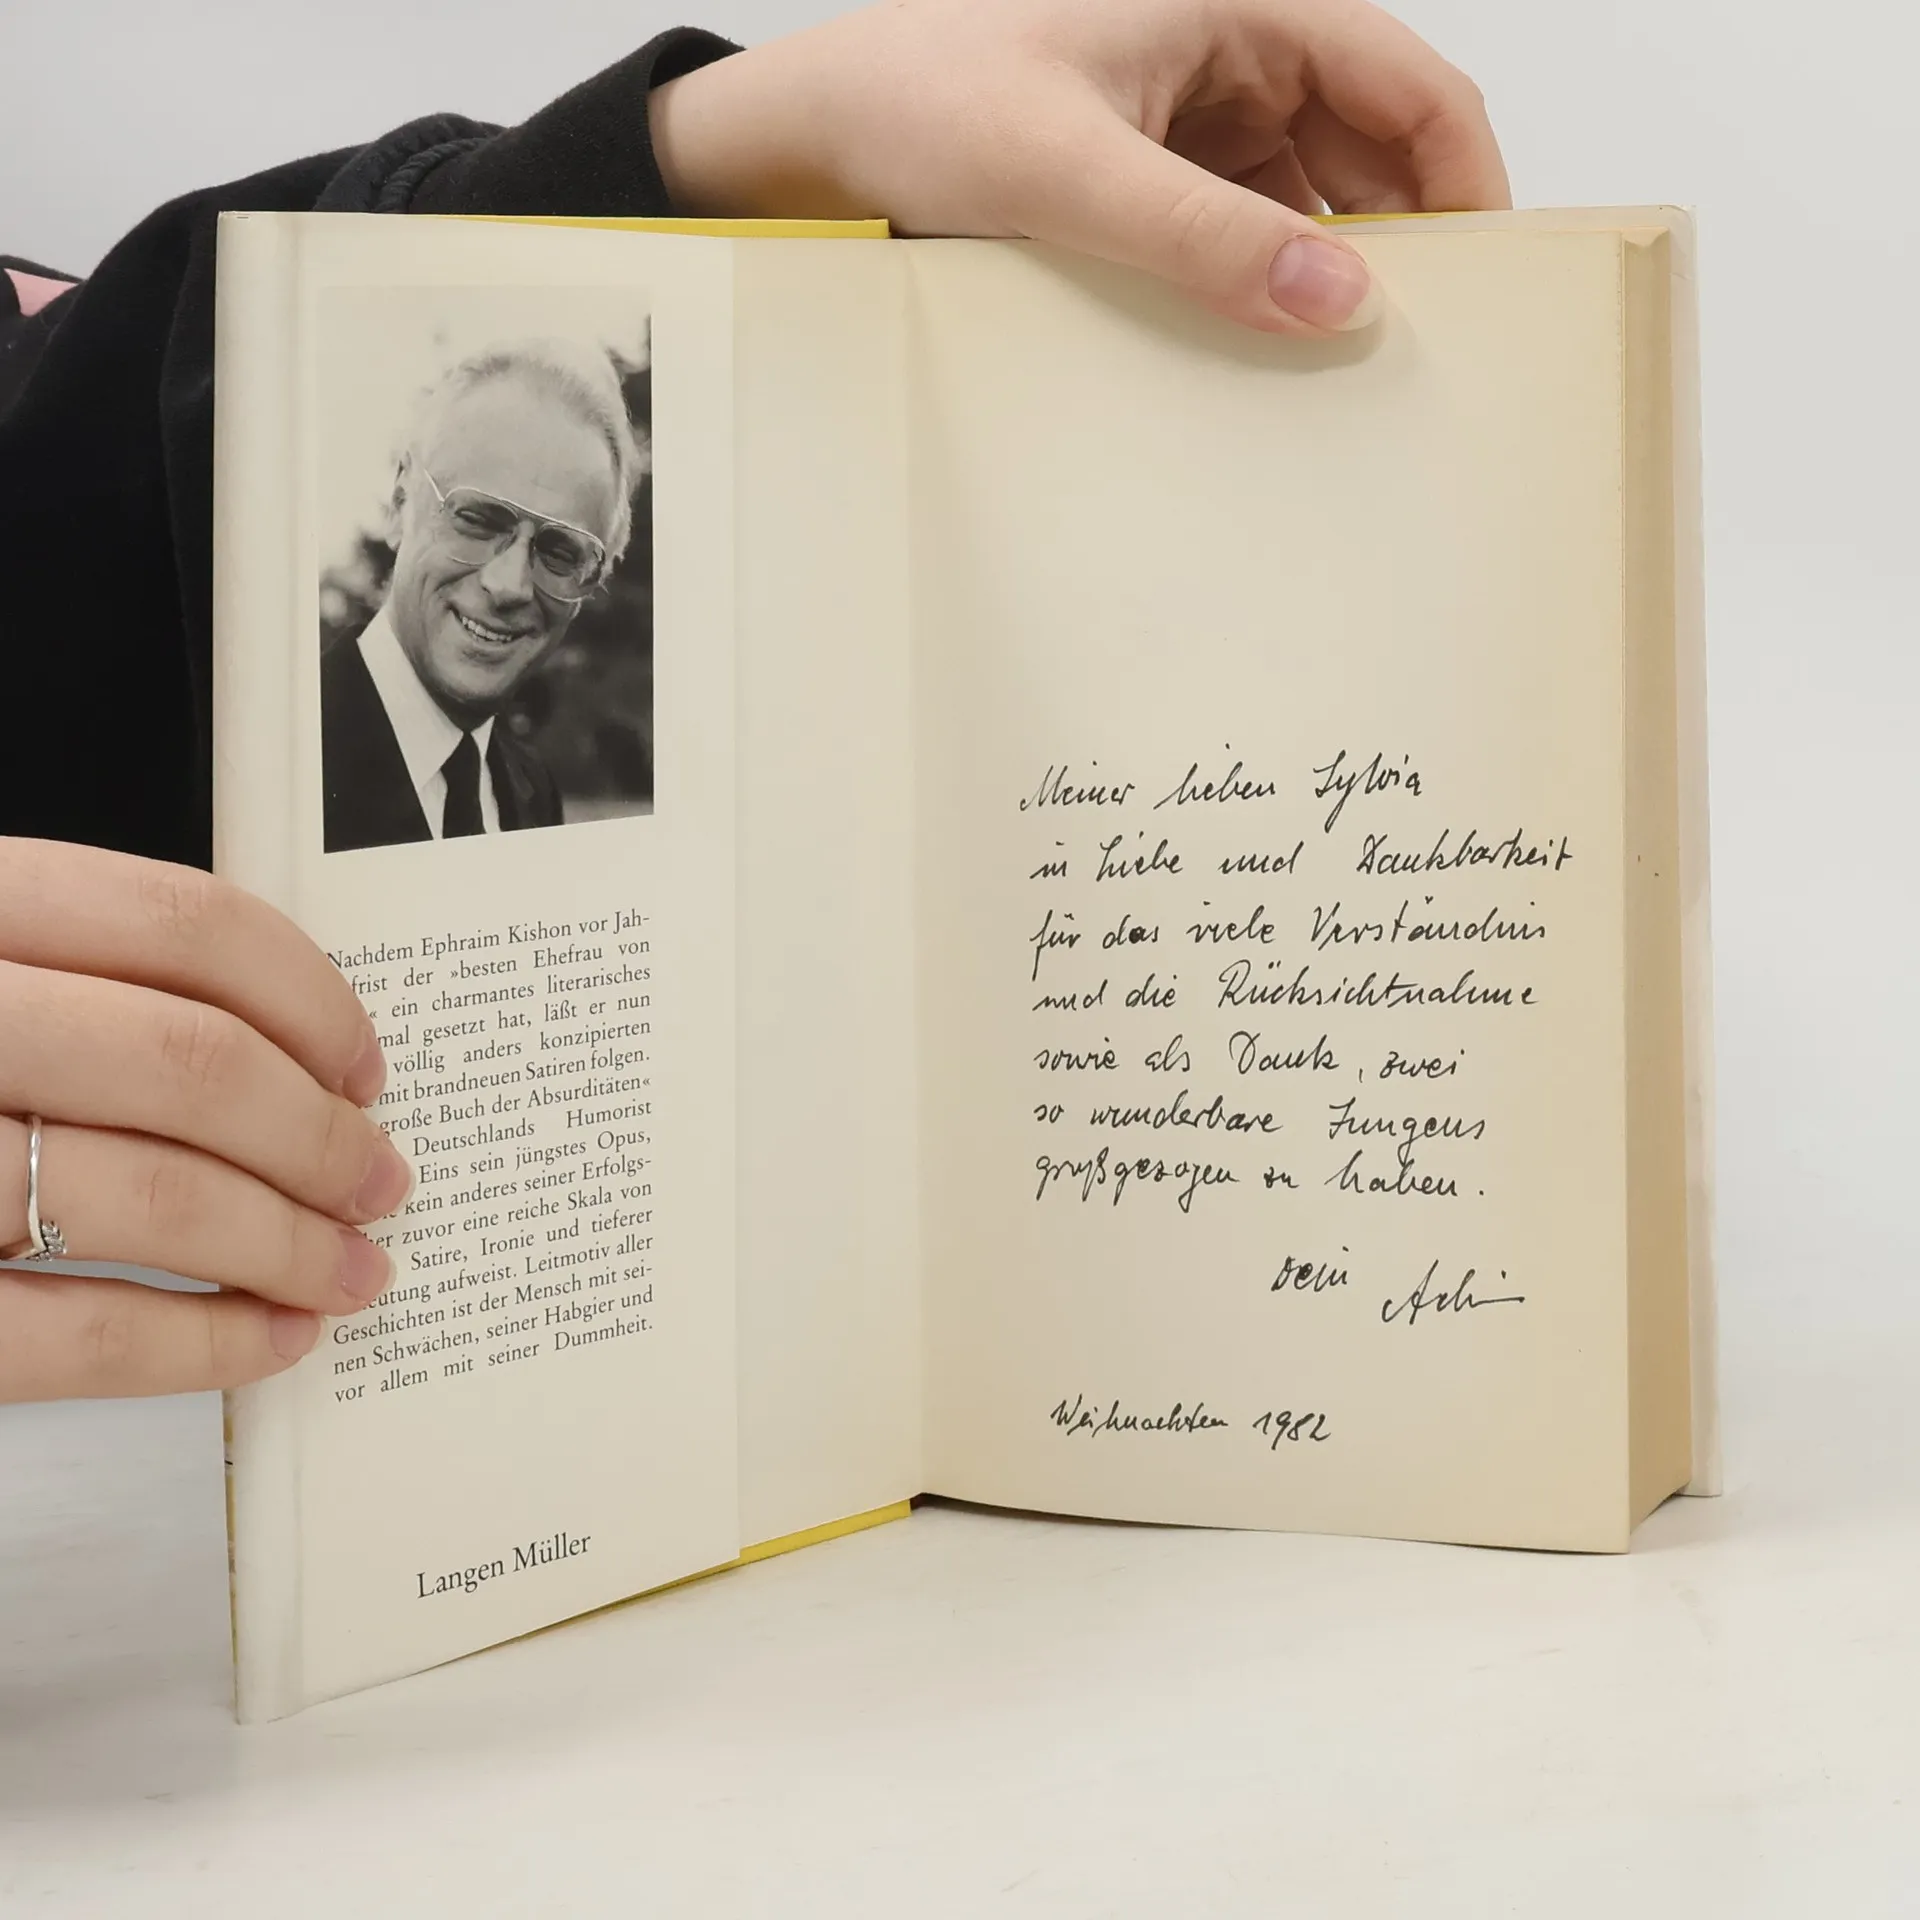 Nachdem Ephraim Kishon vor Jah-
frist der »besten Ehefrau von
« ein charmantes literarisches
mal gesetzt hat, läßt er nun
völlig anders konzipierten
mit brandneuen Satiren folgen.
große Buch der Absurditäten«
Deutschlands Humorist
Eins sein jüngstes Opus,
kein anderes seiner Erfolgs-
her zuvor eine reiche Skala von
Satire, Ironie und tieferer
eutung aufweist. Leitmotiv aller
Geschichten ist der Mensch mit sei-
nen Schwächen, seiner Habgier und
vor allem mit seiner Dummheit.
Langen Müller
Meiner lieben Sylvia
in Liebe und Dankbarkeit
für das viele Verständnis
und die Rücksichtnahme
sowie als Dank, zwei
so wunderbare Jungens
großgezogen zu haben.
Dein Achim
Weihnachten 1982